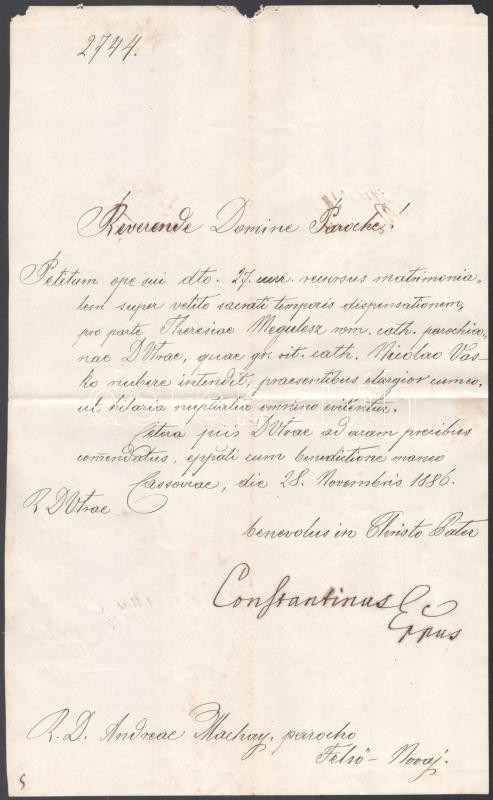 2744.
Reverende Domine Paroche!
Petitum ope sui dto. 27. curr. recursus matrimonia-
lem super vetito sacrati temporis dispensationem,
pro parte Theresiae Megulesz rom. cath. parochia-
nae DVtrae, quae gr. rit. cath. Nicolao Vas-
ko nubere intendit, praesentibus elargior cum eo,
ut hilaria nuptialia omnino evitentur.
Cetera piis DVtrae ad aram precibus
comendatus, eppali cum benedictione maneo
Cassoviae, die 28. Novembris 1886.
R DVtrae
benevolus in Christo Pater
Constantinus
Eppus
R. D. Andreae Machay, parocho
Felső-Novaj.